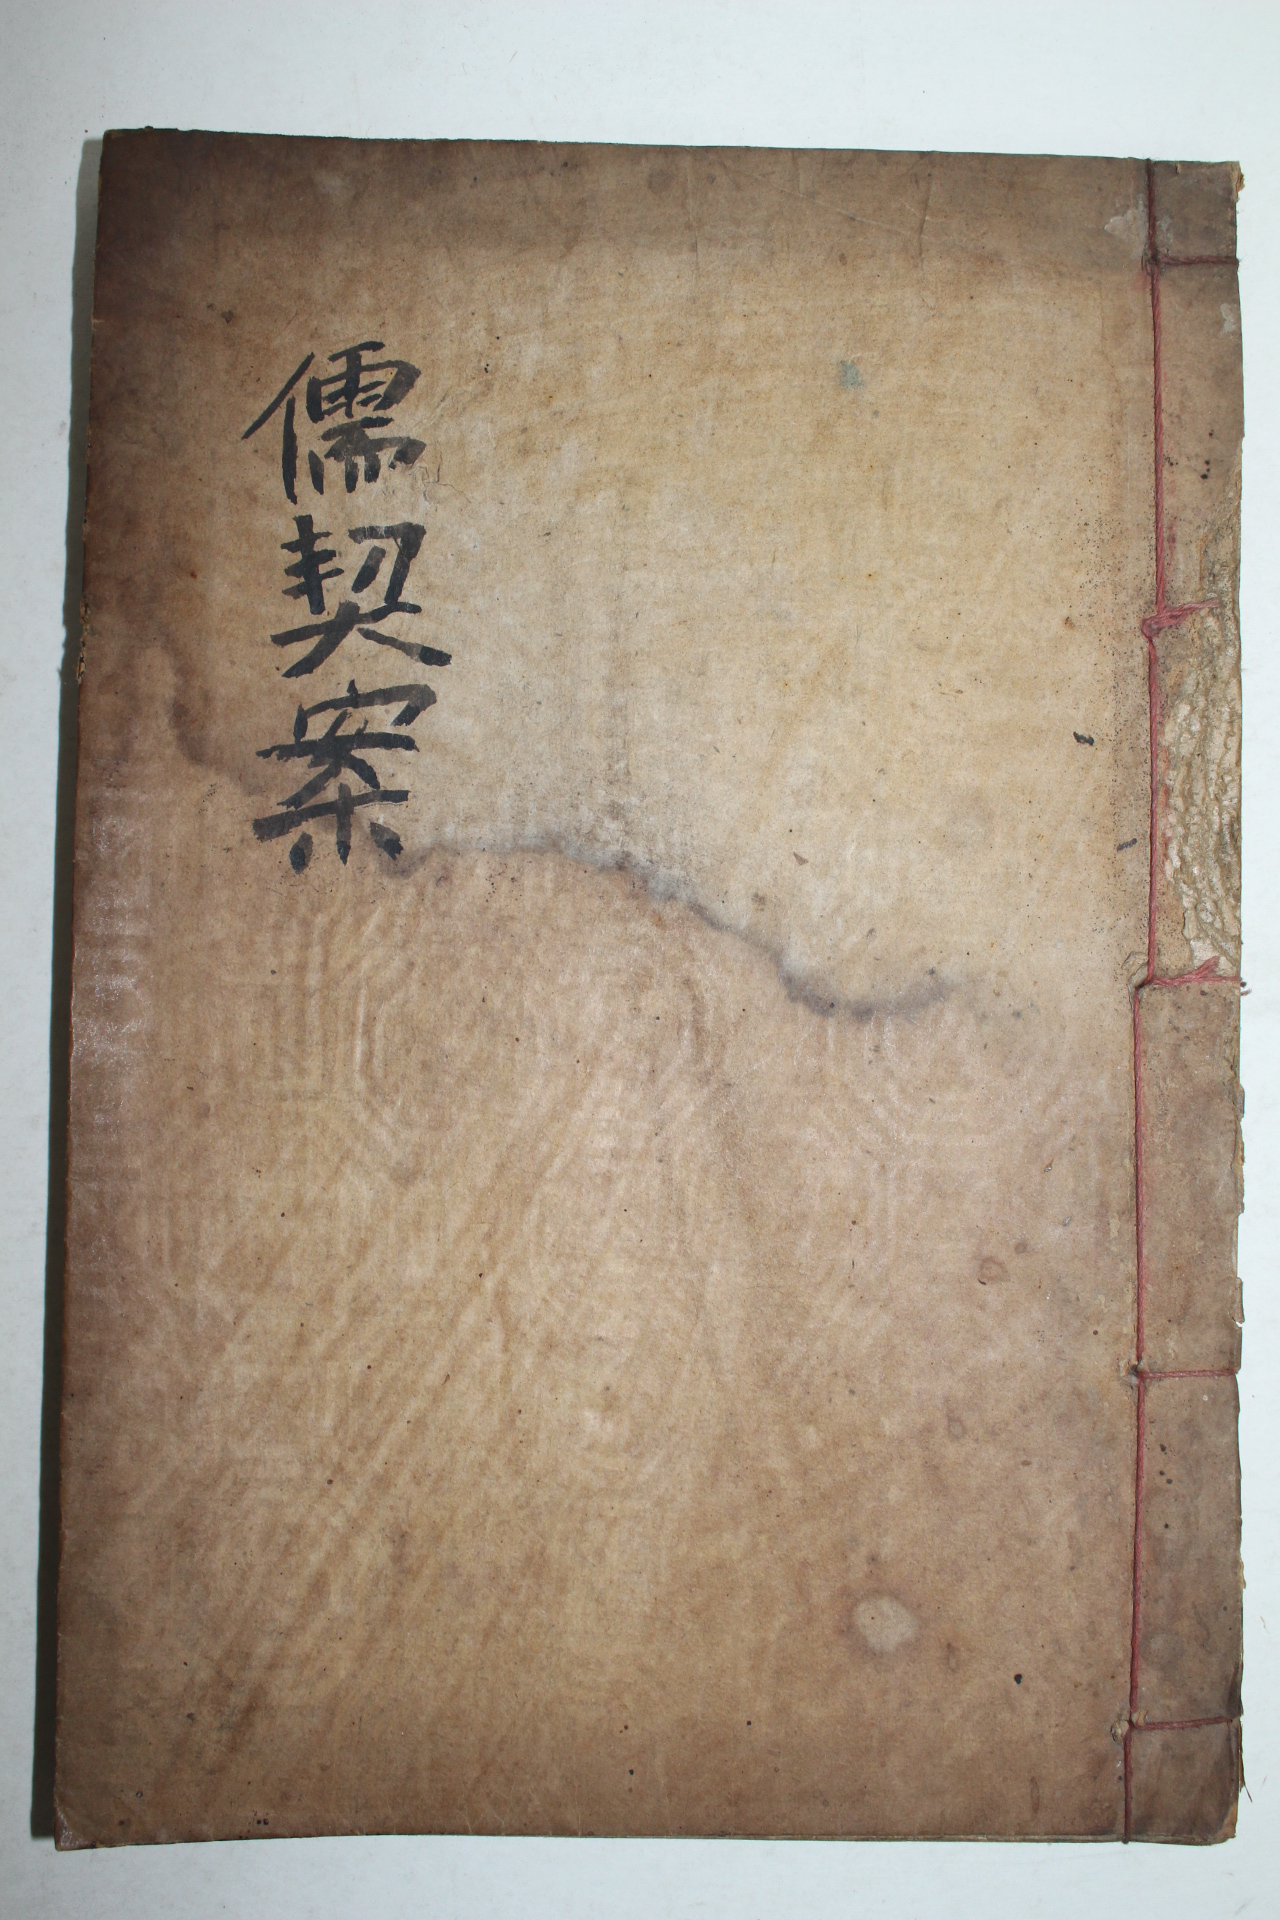 儒契案